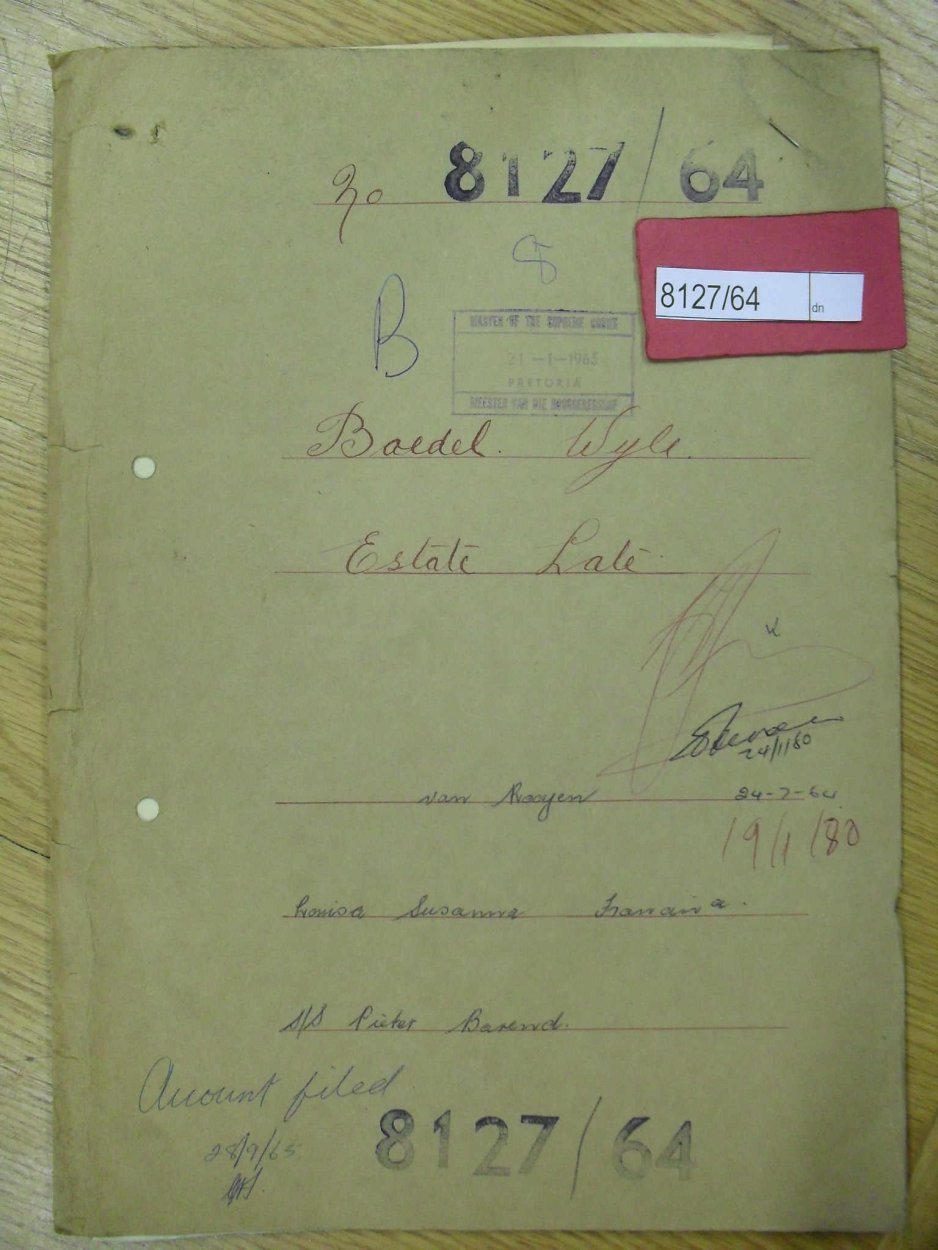 No 8127/64
8
8127/64 dn
B
MASTER OF THE SUPREME COURT
21-1-1965
PRETORIA
MEESTER VAN DIE HOOGGEREGSHOF
Boedel Wyle
Estate Late
24/1/80
van Rooyen 24-7-64
19/1/80
Louisa Susanna
S/S Pieter Barend.
Account filed
28/9/65
8127/64